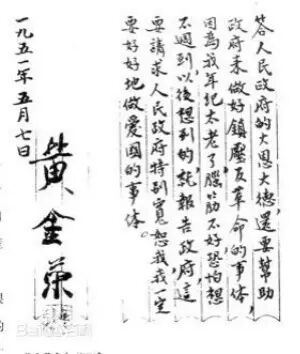 答人民政府的大恩大德，還要幫助
政府来做好鎮壓反革命的事体，
因為我年纪太老了，腦筋不好，恐怕想
不週到，以後想到的就报告政府，這
要請求人民政府特别寬恕我，我一定
要好好地做爱國的事体。
一九五一年五月七日
黄金荣
Bai 百科